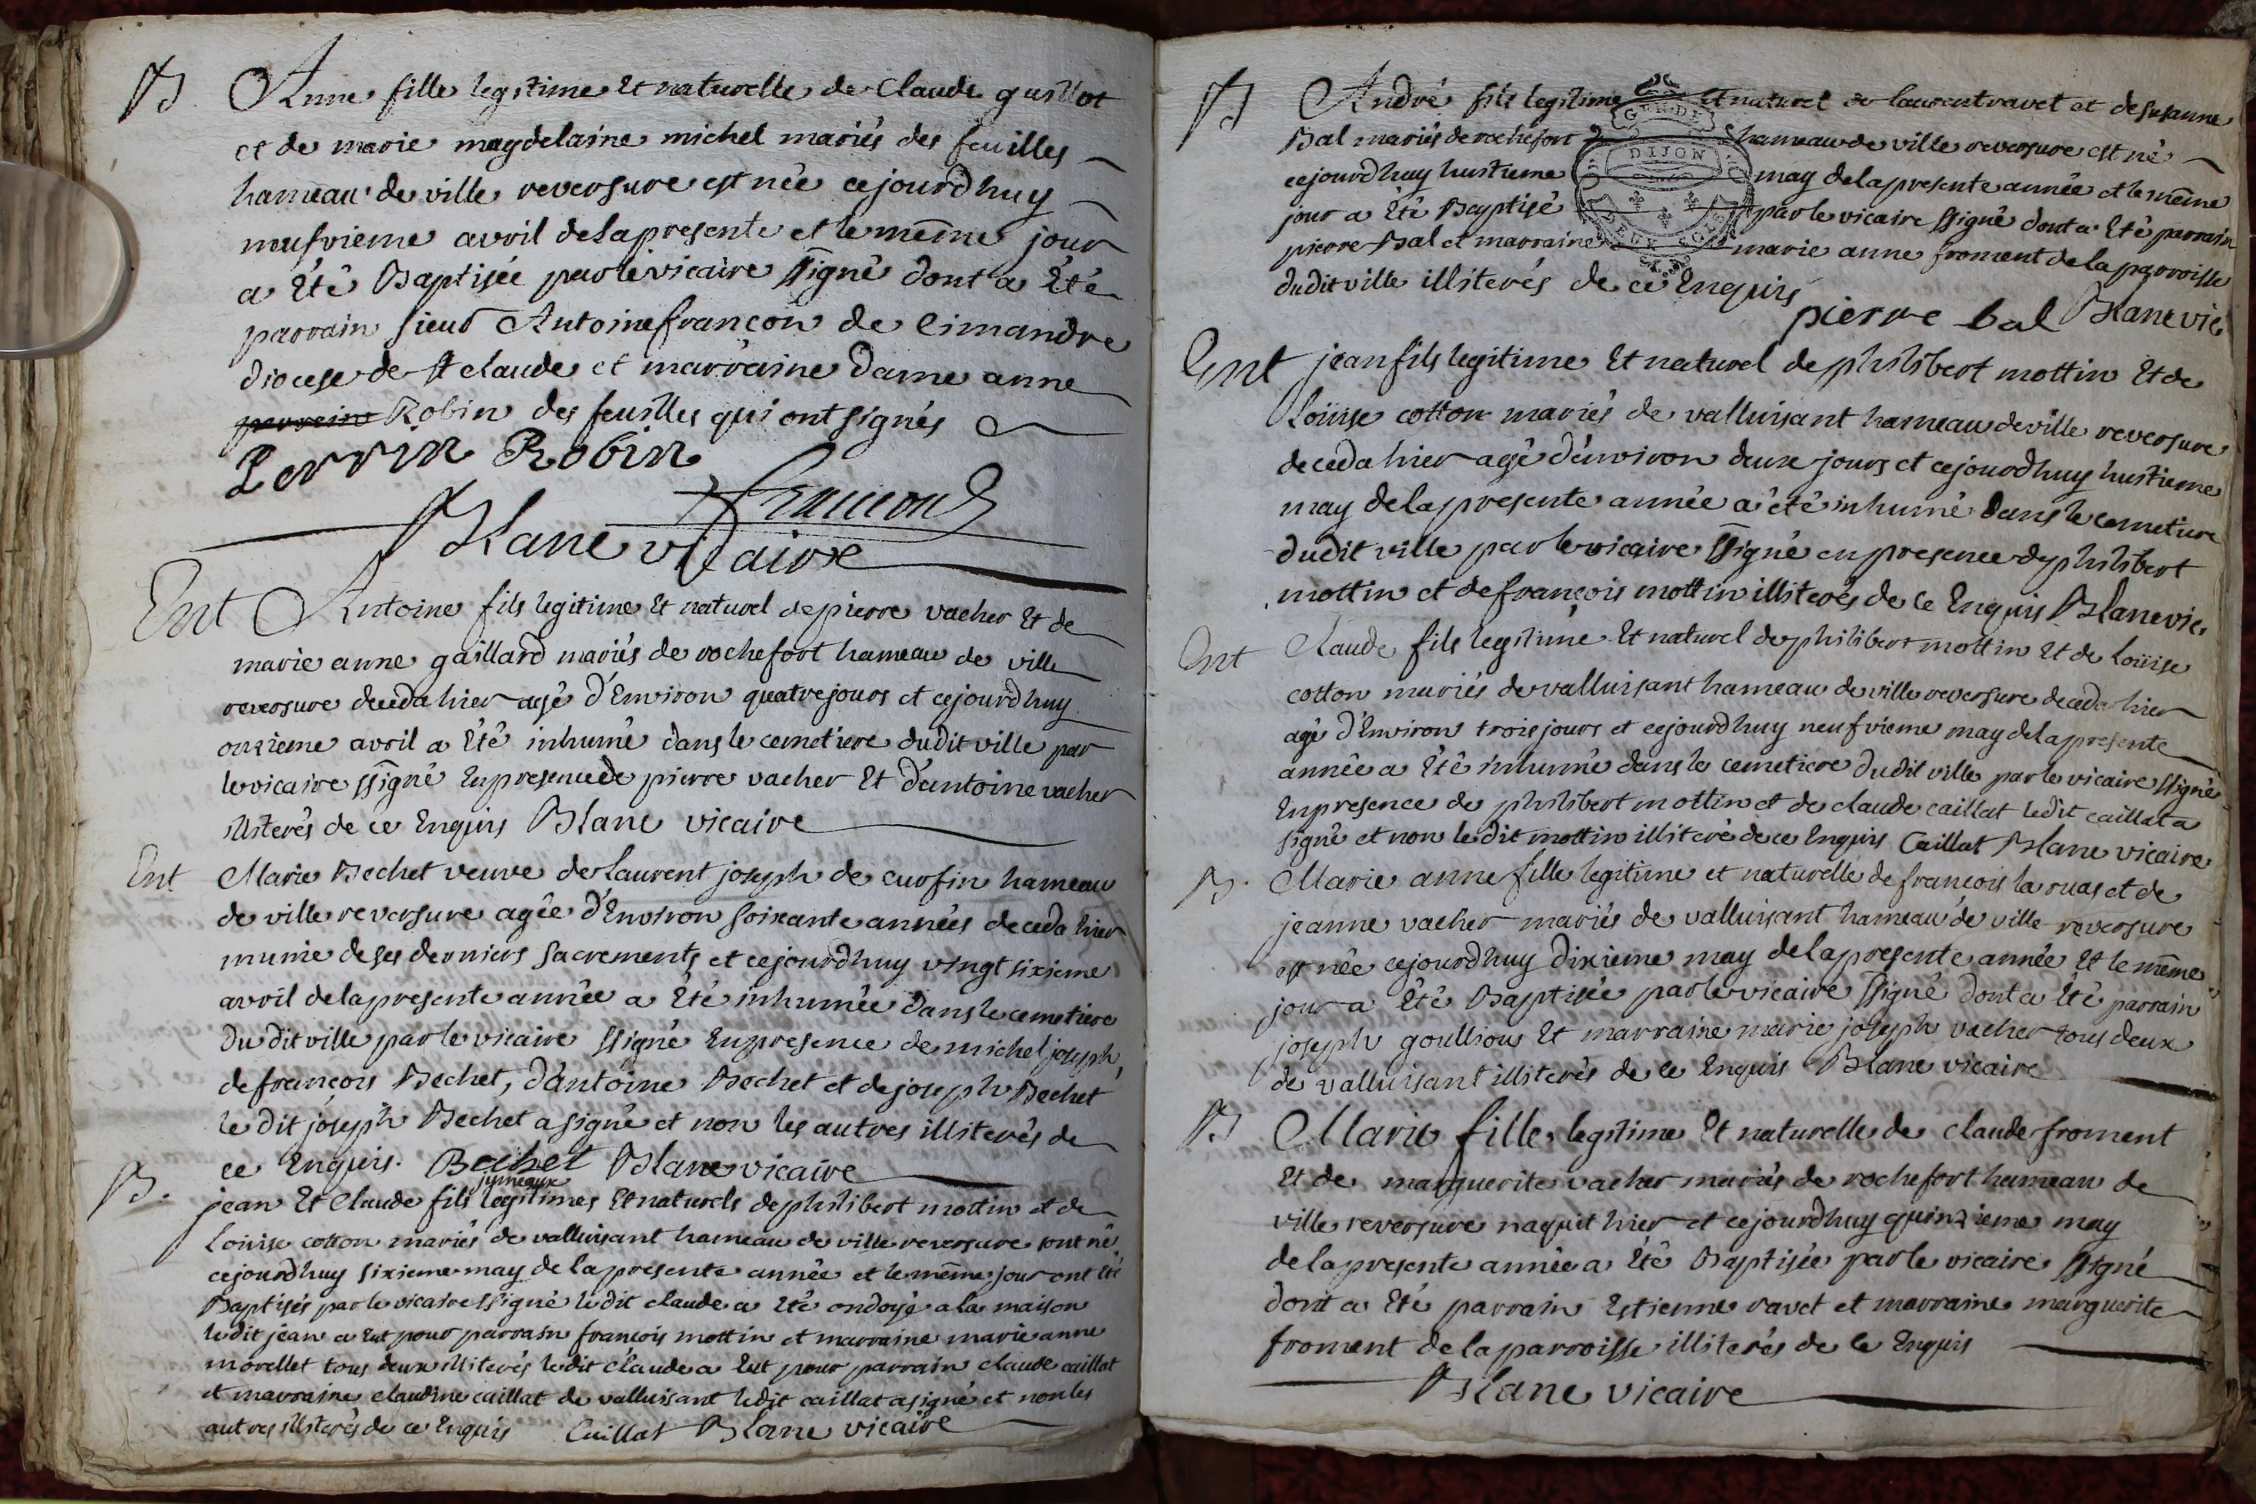 B. Anne fille legitime Et naturelle de Claude guillot
et de marie magdelaine michel mariés des feuilles
hameau de ville reversure est née cejourdhuy
neufvieme avril delapresente et le même jour
a Eté Baptisée par levicaire ssigné dont a Eté
parrain sieur Antoine françon de Cimandre
diocese de st claude et marraine dame anne
perrein Robin des feuilles qui ont signés
Perrin Robin
francon
Blanc vicaire
Ent Antoine fils legitime Et naturel de pierre vacher Et de
marie anne gaillard mariés de rochefort hameau de ville
reversure deceda hier agé d'Environ quatre jours et cejourdhuy
onzieme avril a Eté inhumé dans le cemetiere dudit ville par
levicaire ssigné Enpresence de pierre vacher Et d'antoine vacher
illiterés de ce Enquis Blanc vicaire
Ent Marie Bechet veuve de Laurent joseph de curfin hameau
de ville reversure agée d'Environ soixante années deceda hier
munie de ses derniers sacrements et cejourdhuy vingt sixieme
avril delapresente année a Eté inhumée dans le cemetiere
du dit ville par le vicaire ssigné Enpresence de michel joseph,
de francois Bechet, d'antoine Bechet et de joseph Bechet
le dit joseph Bechet a signé et non les autres illiterés de
ce Enquis. Bechet Blanc vicaire
jumeaux
B. jean Et Claude fils legitimes Et naturels de philibert mottin et de
Louise cotton mariés de valluisant hameau de ville reversure sont né
cejourdhuy sixieme may de la presente année et le même jour ont Eté
Baptisés par le vicaire ssigné ledit claude a Eté ondoyé a la maison
ledit jean a Eut pour parrain francois mottin et marraine marie anne
morellet tous deux illiterés ledit claude a Eut pour parrain claude caillat
et marraine claudine caillat de valluisant ledit caillat a signé et non les
autres illiterés de ce Enquis Caillat Blanc vicaire
B André fils legitime Et naturel de laurent ravet et de susanne
Bal mariés de rochefort hameau de ville reversure est né
cejourdhuy huitieme may delapresente année et le même
jour a Eté Baptisé par le vicaire ssigné dont a Eté parrain
pierre Bal et marraine marie anne froment de la parroisse
dudit ville illiterés de ce Enquis
pierre bal Blanc vic.
GEN. DE
DIJON
Ent jean fils legitime Et naturel de philibert mottin Et de
Loüise cotton mariés de valluisant hameau de ville reversure
deceda hier agé d'environ deux jours et cejourdhuy huitieme
may delapresente année a été inhumé dans le cemetiere
dudit ville par le vicaire ssigné en presence de philibert
mottin et de françois mottin illiterés de ce Enquis Blanc vic.
Ent Claude fils legitime Et naturel de philibert mottin Et de Loüise
cotton mariés de valluisant hameau de ville reversure deceda hier
agé d'Environ trois jours et cejourdhuy neufvieme may delapresente
année a Eté inhumé dans le cemetiere dudit ville par le vicaire ssigné
Enpresence de philibert mottin et de claude caillat ledit caillat a
signé et non ledit mottin illiteré de ce Enquis Caillat Blanc vicaire
B. Marie anne fille legitime et naturelle de francois la ruas et de
jeanne vacher mariés de valluisant hameau de ville reversure
est née cejourdhuy dixieme may delapresente année Et le même
jour a Eté Baptisée par le vicaire ssigné dont a Eté parrain
joseph goullion Et marraine marie joseph vacher tous deux
de valluisant illiterés de ce Enquis Blanc vicaire
B Marie fille legitime Et naturelle de claude froment
Et de marguerite vacher mariés de rochefort hameau de
ville reversure naquit hier et cejourdhuy quinzieme may
de la presente année a Eté Baptisée par le vicaire ssigné
dont a Eté parrain Estienne ravet et marraine marguerite
froment de la parroisse illiterés de ce Enquis
Blanc vicaire